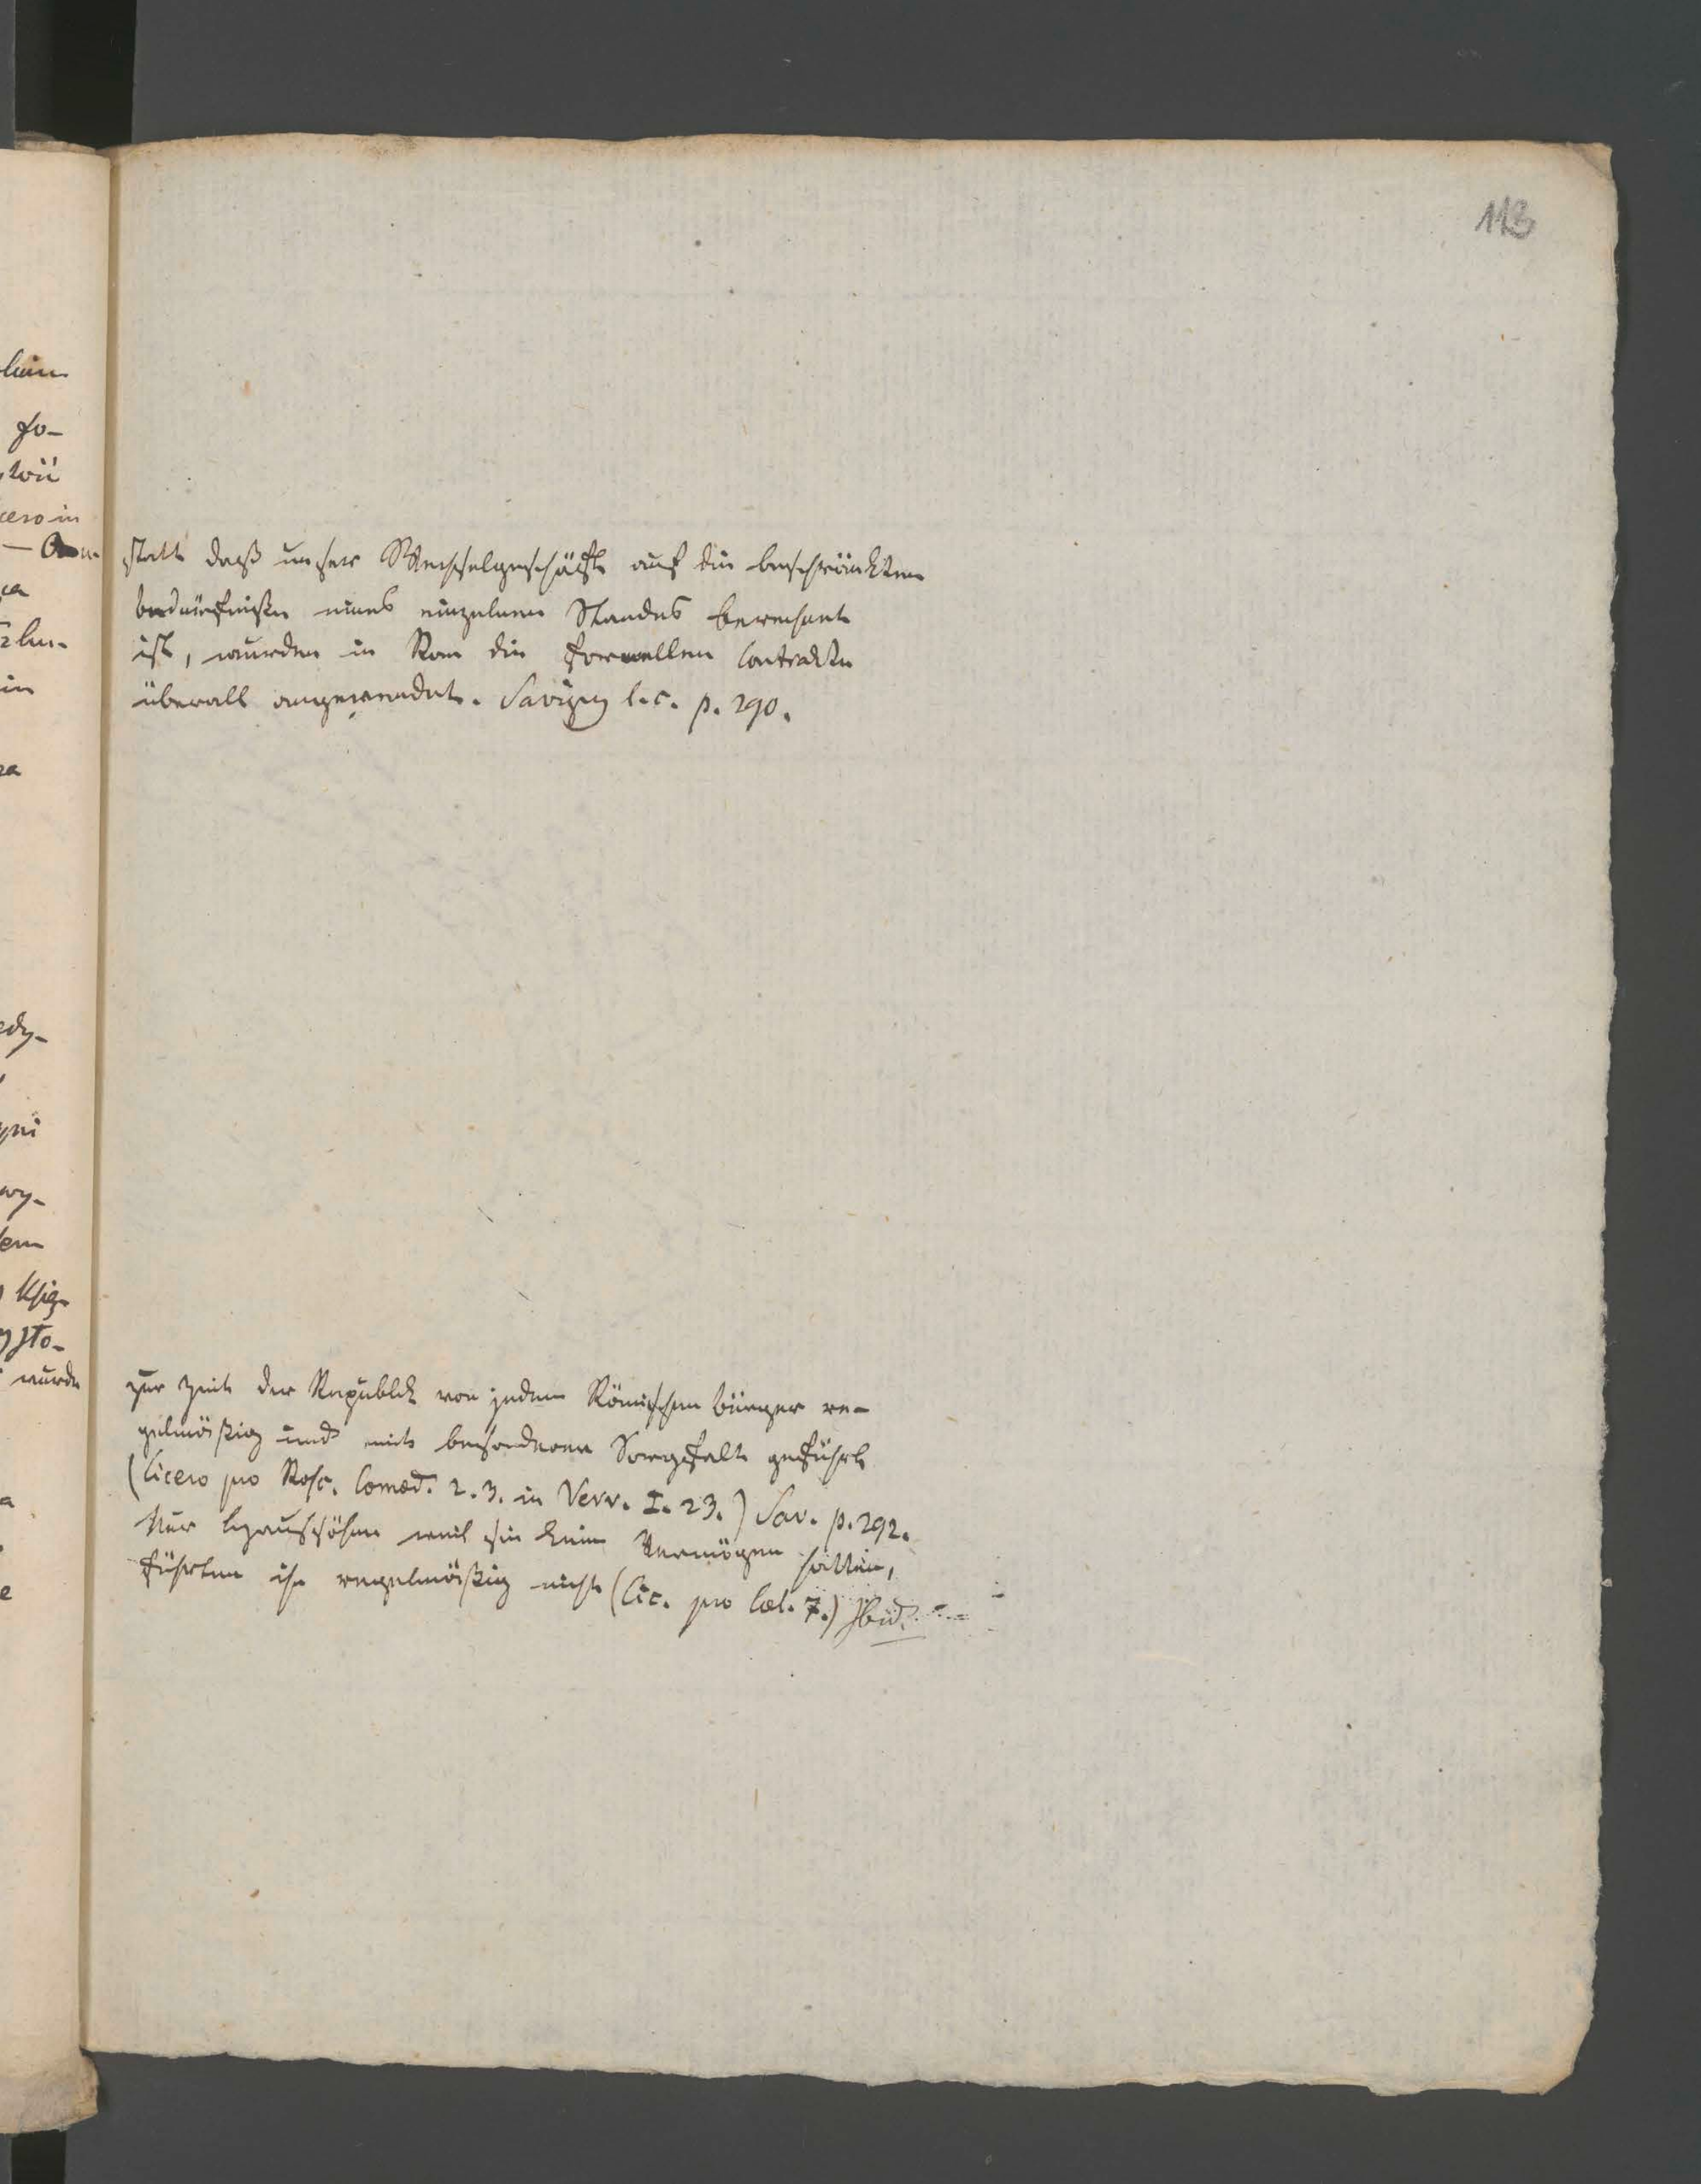 113
statt daß unser Wechselgeschäft auf die beschränkten
bedürfnißen eines einzelnen Standes berechnet
ist, wurden in Rom die formellen Contrakte
überall angewendet. Savigny l. c. p. 290.
zur Zeit der Republik von jedem Römischen bürger re-
gelmäßig und mit besonderer Sorgfalt geführt
(Cicero pro Rosc. Comœd. 2. 3. in Verr. I. 23.) Sav. p. 292.
Nur Haussöhne weil sie kein Vermögen hatten,
führten ihn regelmäßig nicht (Cic. pro Cœl. 7.) Ibid.
lium
fo-
ero in
edy-
wy-
dem
Ksią-
sto-
wurde